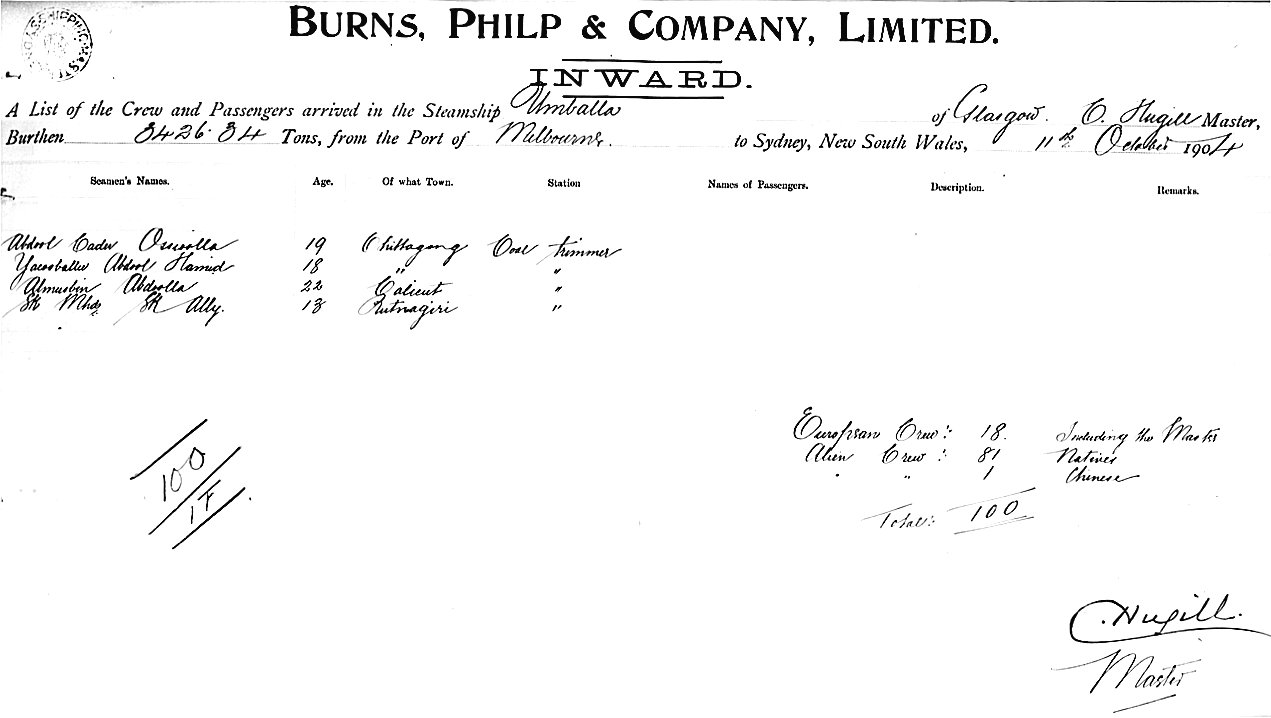 BURNS, PHILP & COMPANY, LIMITED.
INWARD.
A List of the Crew and Passengers arrived in the Steamship Umballa of Glasgow. C. Hugill Master,
Burthen 3426.34 Tons, from the Port of Melbourne. to Sydney, New South Wales, 11th October 1904
Seamen's Names. Age. Of what Town. Station Names of Passengers. Description. Remarks.
Abdool Cader Osmolla 19 Chittagong Coal trimmer
Yacooballee Abdool Hamid 18 " "
Almusbin Abdoolla 22 Calicut "
SK Mhd: SK Ally. 18 Rutnagiri "
European Crew: 18. Including the Master
Alien Crew: 81 Natives
" " 1 Chinese
Total: 100
100
1F
C. Hugill.
Master